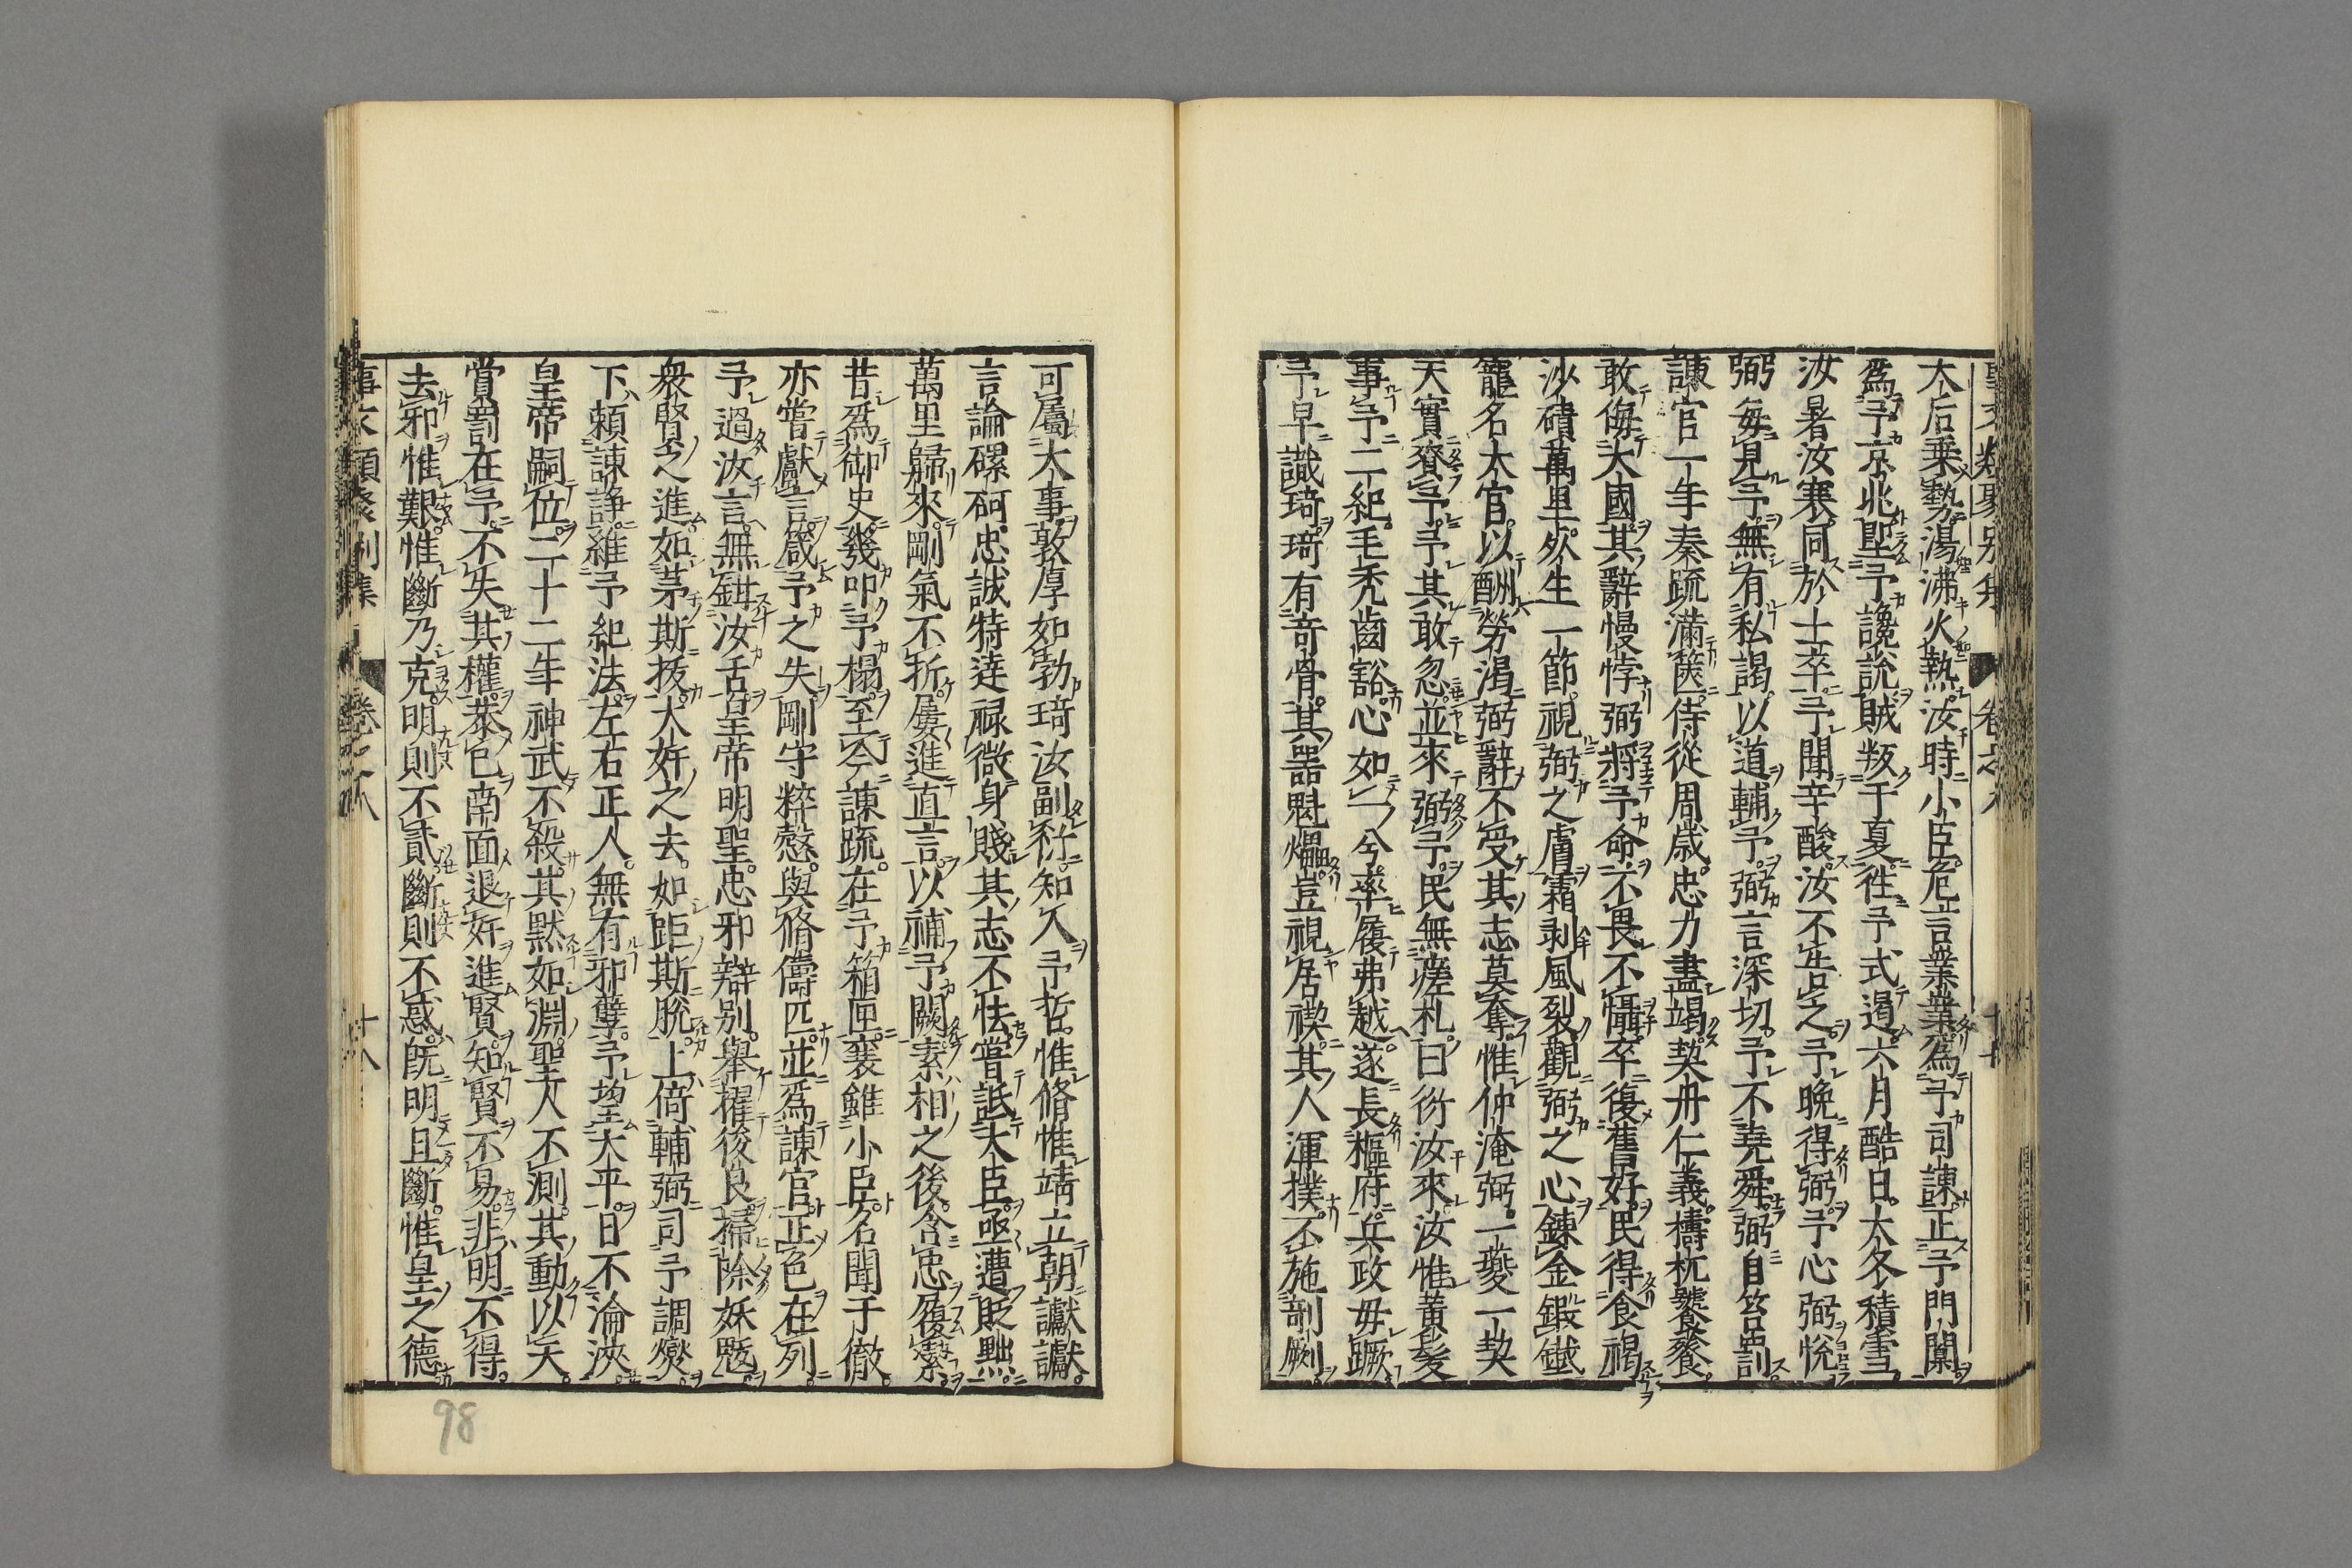 大后乗勢湯沸火熱汝時小臣危言業業爲予司諫正予門闑
爲予京兆聖予讒說賊叛于夏徃予式遏六月酷日大冬積雪
汝暑汝寒同於士卒予聞辛酸汝不告之予晚得弼予心弼悅
弼每見予無有私謁以道輔予弼言深切予不堯舜弼自笞罰
諫官一年奏疏滿篋侍從周歲忠力盡竭契丹仁義檮杌饕餮
敢侮大國其辭慢悖弼將予命不畏不懾卒復舊好民得食褐
沙磧萬里死生一節視弼之膚霜剥風裂觀弼之心鍊金鍜鐵
寵名大官以酬勞渴弼辭不受其志莫奪惟仲淹弼一夔一契
天實賚予予其敢忽並來弼予民無瘥札曰衍汝來汝惟黄髮
事予二紀毛秃齒豁心如一兮率履弗越遂長樞府兵政毋蹶
予早識琦琦有奇骨其器魁櫑豈視居楔其人渾撲不施剞劂
可屬大事敦厚如勃琦汝副衍知人予哲惟脩惟靖立朝讞讞
言論磥砢忠誠特逹禄微身賤其志不怯嘗詆大臣亟遭貶黜
萬里歸來剛氣不折屢進直言以補予闕素相之後含忠履㓗
昔爲御史幾叩予榻至今諫疏在予箱匣襄雖小臣名聞于徹
亦嘗獻言箴予之失剛守粹慤與脩儔匹並爲諫官正色在列
予過汝言無鉗汝舌皇帝明聖忠邪辯别舉擢後良掃除妖魃
衆賢之進如茅斯拔大奸之去如距斯脫上倚輔弼司予調爕
下賴諫諍維予紀法左右正人無有邪孽予望大平日不淪浹
皇帝嗣位二十二年神武不殺其默如淵聖人不測其動以天
賞罰在予不失其權恭巳南面退奸進賢知賢不易非明不得
去邪惟艱惟斷乃克明則不貳斷則不惑既明且斷惟皇之德
98